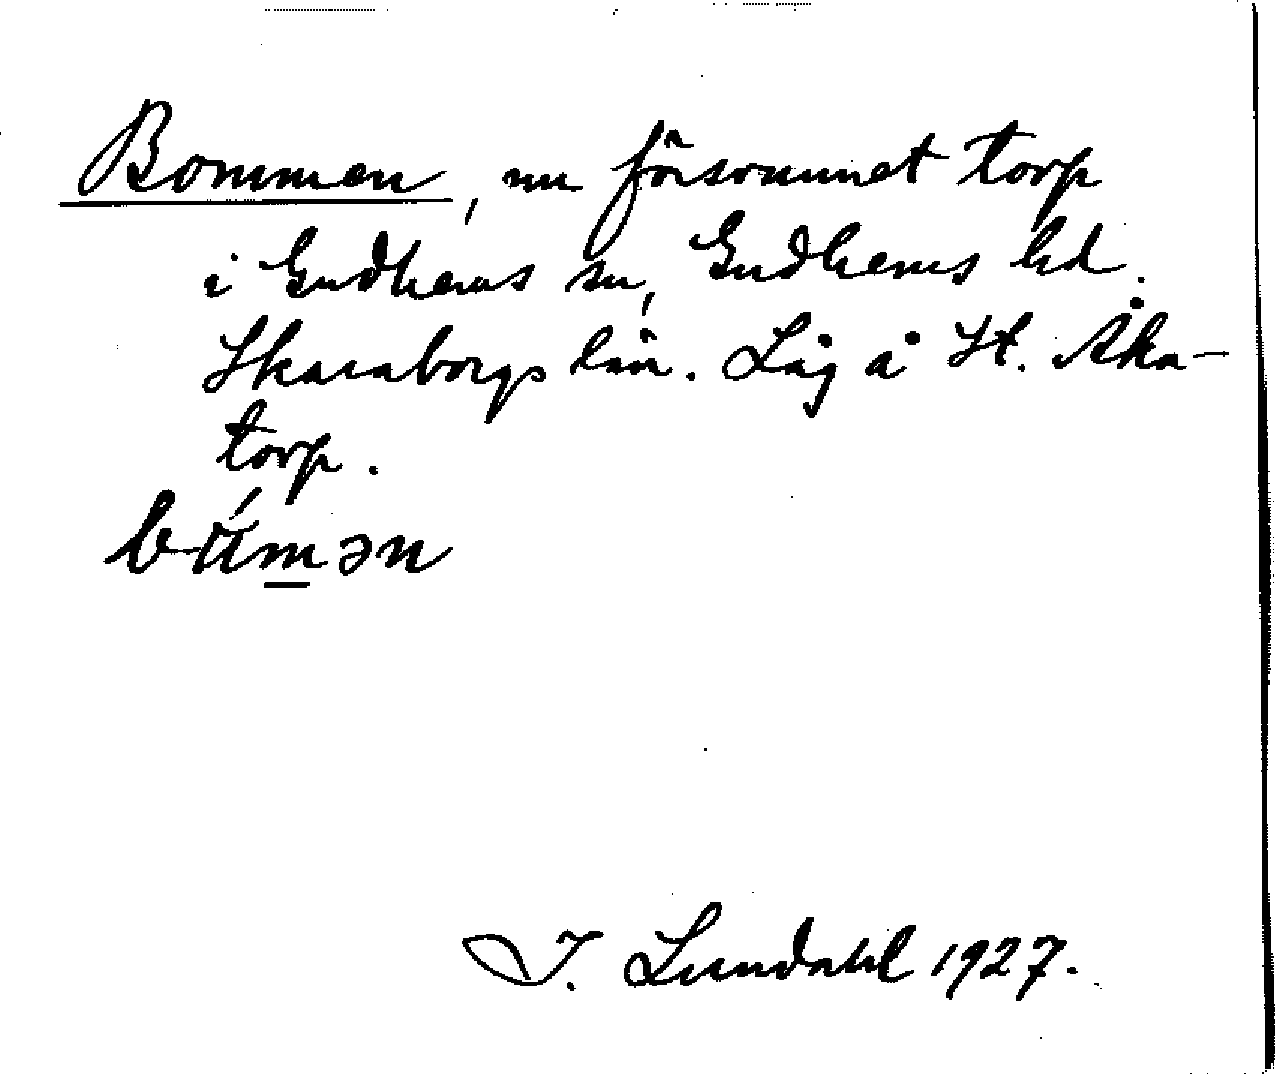 Bommen, nu försvunnet torp
i Gudhems sn, Gudhems hd.
Skaraborgs län. Låg å St. Åka-
torp.
I. Lundahl 1927.